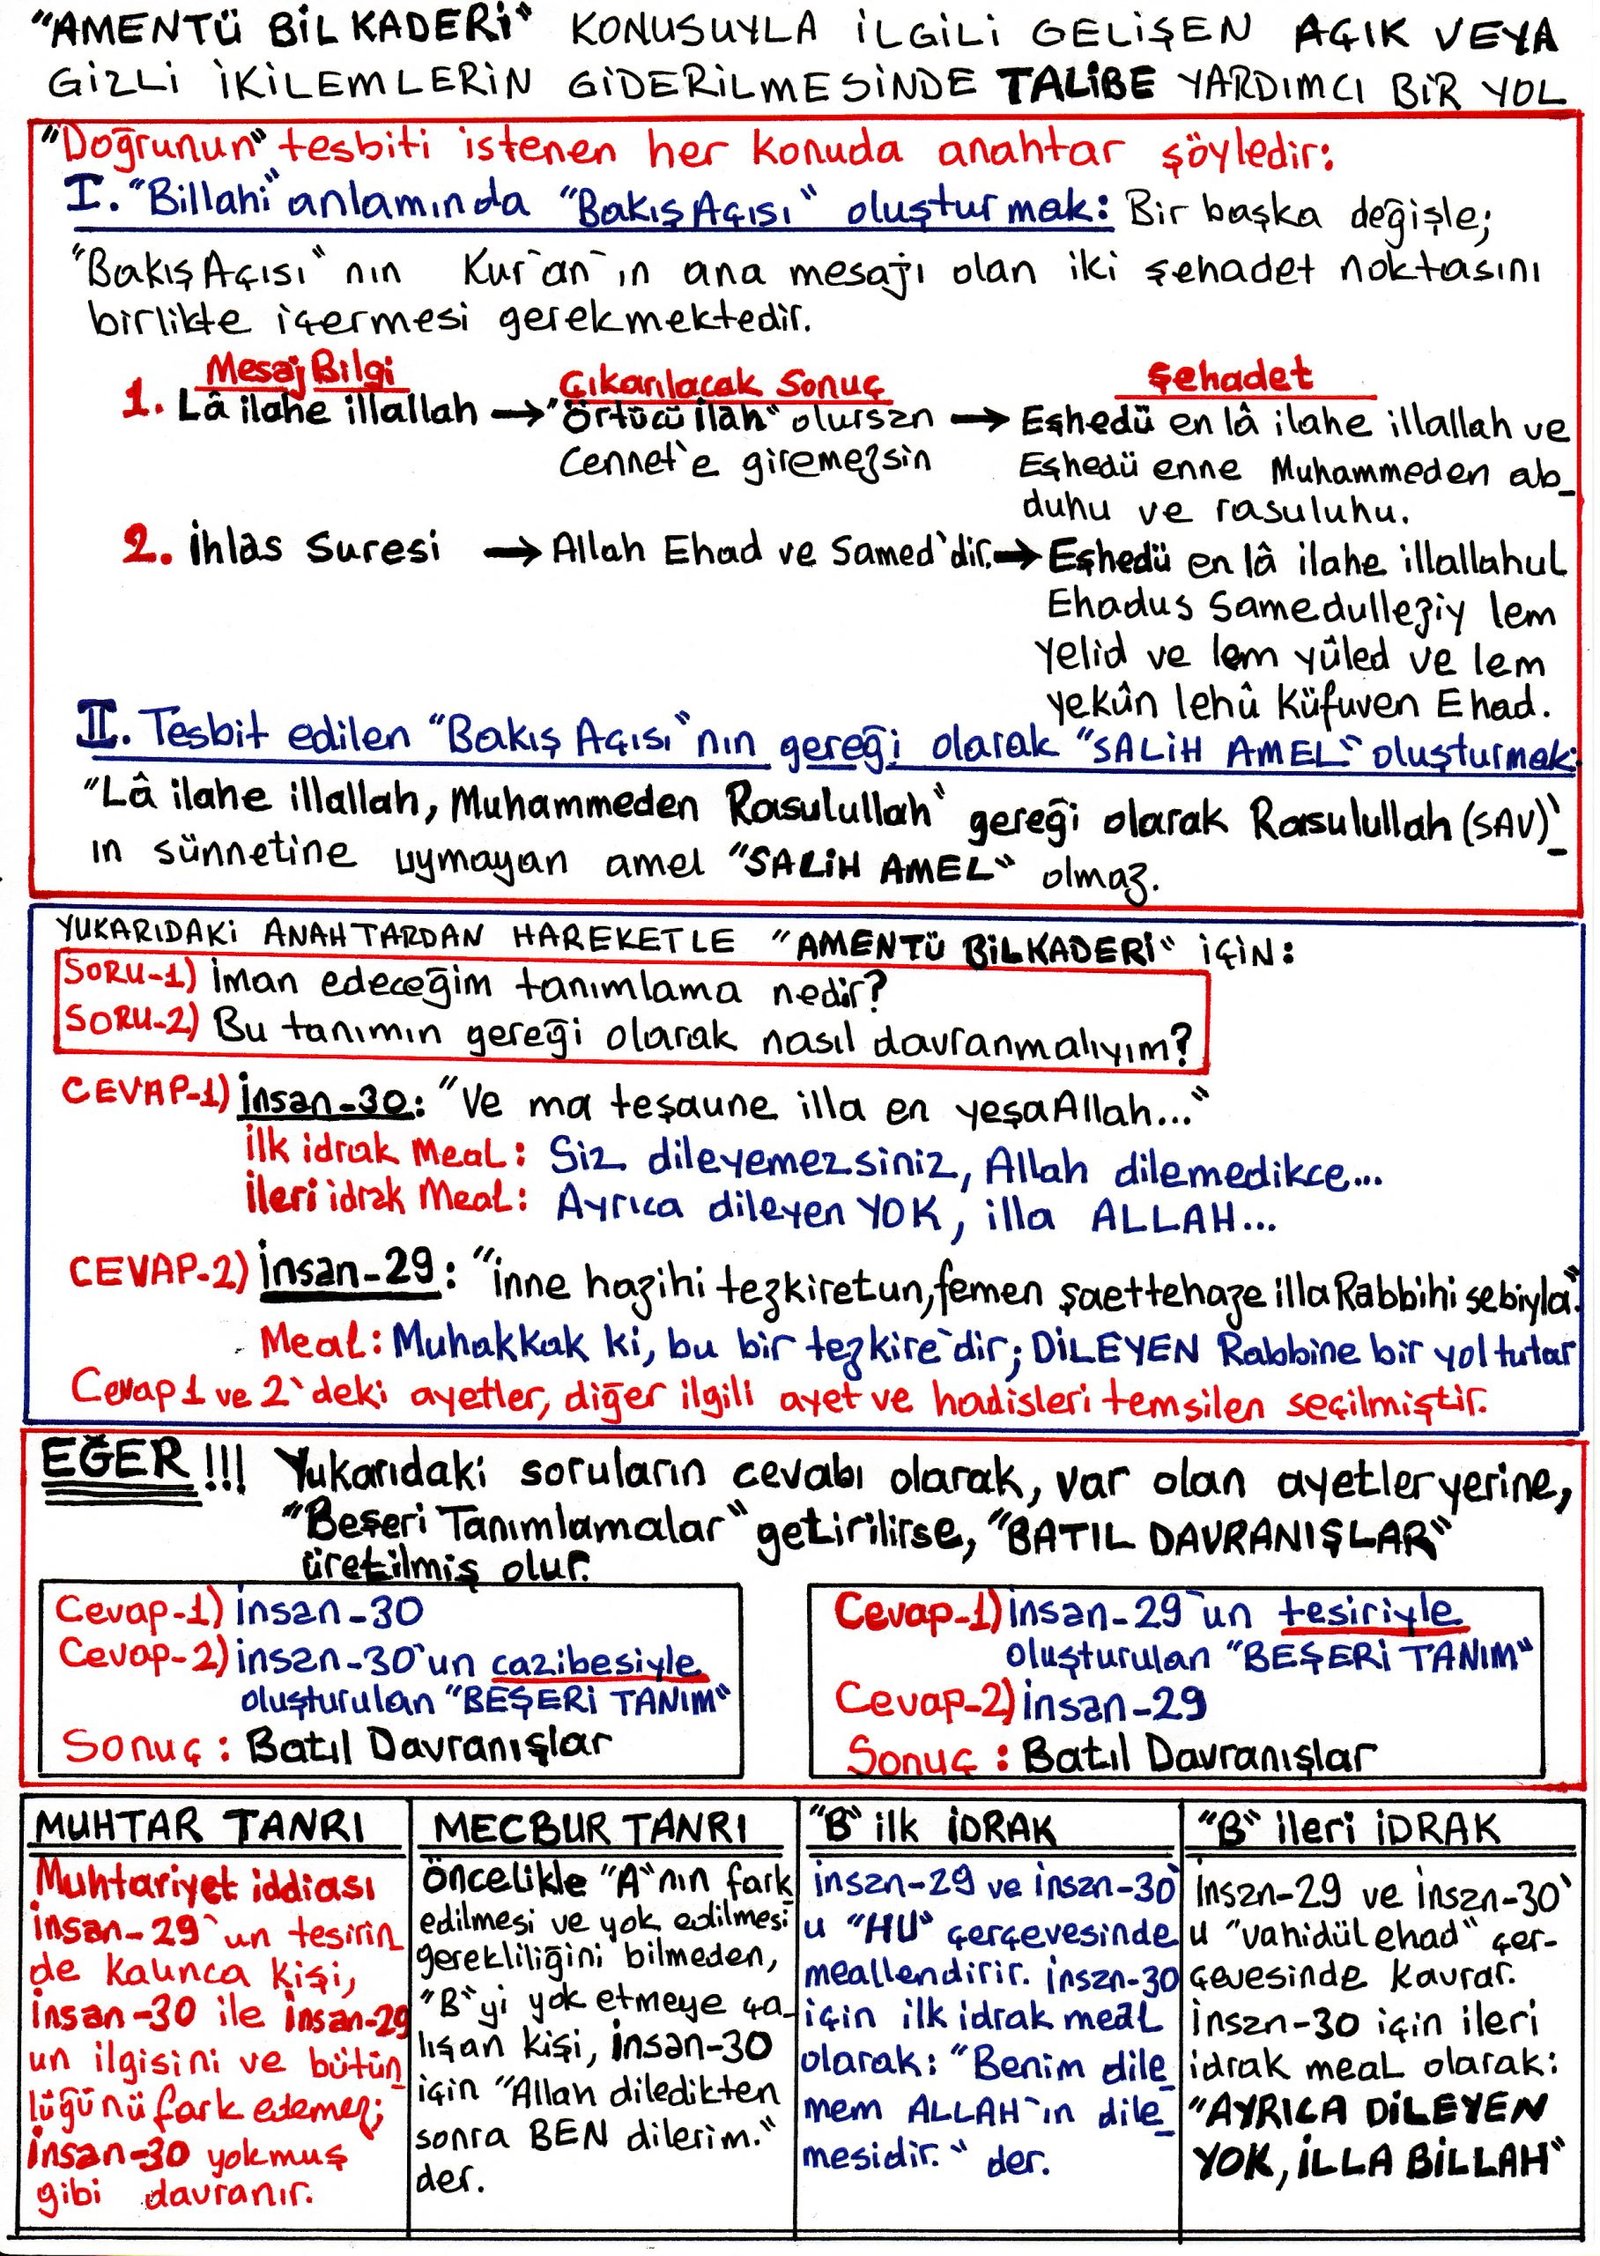 "AMENTÜ BİLKADERİ" KONUSUYLA İLGİLİ GELİŞEN AÇIK VEYA
GİZLİ İKİLEMLERİN GİDERİLMESİNDE TALİBE YARDIMCI BİR YOL
"Doğrunun" tesbiti istenen her konuda anahtar şöyledir:
I. "Billahi" anlamında "Bakış Açısı" oluşturmak: Bir başka değişle;
"Bakış Açısı"nın Kur'an'ın ana mesajı olan iki şehadet noktasını
birlikte içermesi gerekmektedir.
Mesaj Bilgi Çıkarılacak Sonuç Şehadet
1. Lâ ilahe illallah → "Örtücü İlah" olursan → Eşhedü en lâ ilahe illallah ve
Cennet'e giremezsin Eşhedü enne Muhammeden ab_
duhu ve rasuluhu.
2. İhlâs Suresi → Allah Ehad ve Samed'dir. → Eşhedü en lâ ilahe illallahul
Ehadus Samedulleziy lem
yelid ve lem yûled ve lem
yekûn lehû küfuven Ehad.
II. Tesbit edilen "Bakış Açısı"nın gereği olarak "SALİH AMEL" oluşturmak:
"Lâ ilahe illallah, Muhammeden Rasulullah" gereği olarak Rasulullah (SAV)'_
ın sünnetine uymayan amel "SALİH AMEL" olmaz.
YUKARIDAKİ ANAHTARDAN HAREKETLE "AMENTÜ BİLKADERİ" İÇİN:
SORU-1) İman edeceğim tanımlama nedir?
SORU-2) Bu tanımın gereği olarak nasıl davranmalıyım?
CEVAP-1) İnsan-30: "Ve ma teşaune illa en yeşaAllah..."
İlk idrak Meal: Siz dileyemezsiniz, Allah dilemedikce...
İleri idrak Meal: Ayrıca dileyen YOK, illa ALLAH...
CEVAP-2) İnsan-29: "İnne hazihi tezkiretun, femen şaettehaze illa Rabbihi sebiyla."
Meal: Muhakkak ki, bu bir tezkire'dir; DİLEYEN Rabbine bir yol tutar
Cevap 1 ve 2'deki ayetler, diğer ilgili ayet ve hadisleri temsilen seçilmiştir.
EĞER!!! Yukarıdaki soruların cevabı olarak, var olan ayetler yerine,
"Beşeri Tanımlamalar" getirilirse, "BATIL DAVRANIŞLAR"
üretilmiş olur.
Cevap-1) İnsan-30
Cevap-2) İnsan-30'un cazibesiyle
oluşturulan "BEŞERİ TANIM"
Sonuç: Batıl Davranışlar
Cevap-1) İnsan-29'un tesiriyle
oluşturulan "BEŞERİ TANIM"
Cevap-2) İnsan-29
Sonuç: Batıl Davranışlar
MUHTAR TANRI
Muhtariyet iddiası
İnsan-29'un tesirin
de kalınca kişi,
İnsan-30 ile İnsan-29
un ilgisini ve bütün_
lüğünü fark edemez;
İnsan-30 yokmuş
gibi davranır.
MECBUR TANRI
Öncelikle "A"nın fark
edilmesi ve yok edilmesi
gerekliliğini bilmeden,
"B"yi yok etmeye ça_
lışan kişi, İnsan-30
için "Allah diledikten
sonra BEN dilerim."
der.
"B" ilk İDRAK
İnsan-29 ve İnsan-30'
u "HU" çerçevesinde
meallendirir. İnsan-30
için ilk idrak meal
olarak: "Benim dile_
mem ALLAH'ın dile_
mesidir." der.
"B" ileri İDRAK
İnsan-29 ve İnsan-30'
u "vahidül ehad" çer-
çevesinde kavrar.
İnsan-30 için ileri
idrak meal olarak:
"AYRICA DİLEYEN
YOK, İLLA BİLLAH"